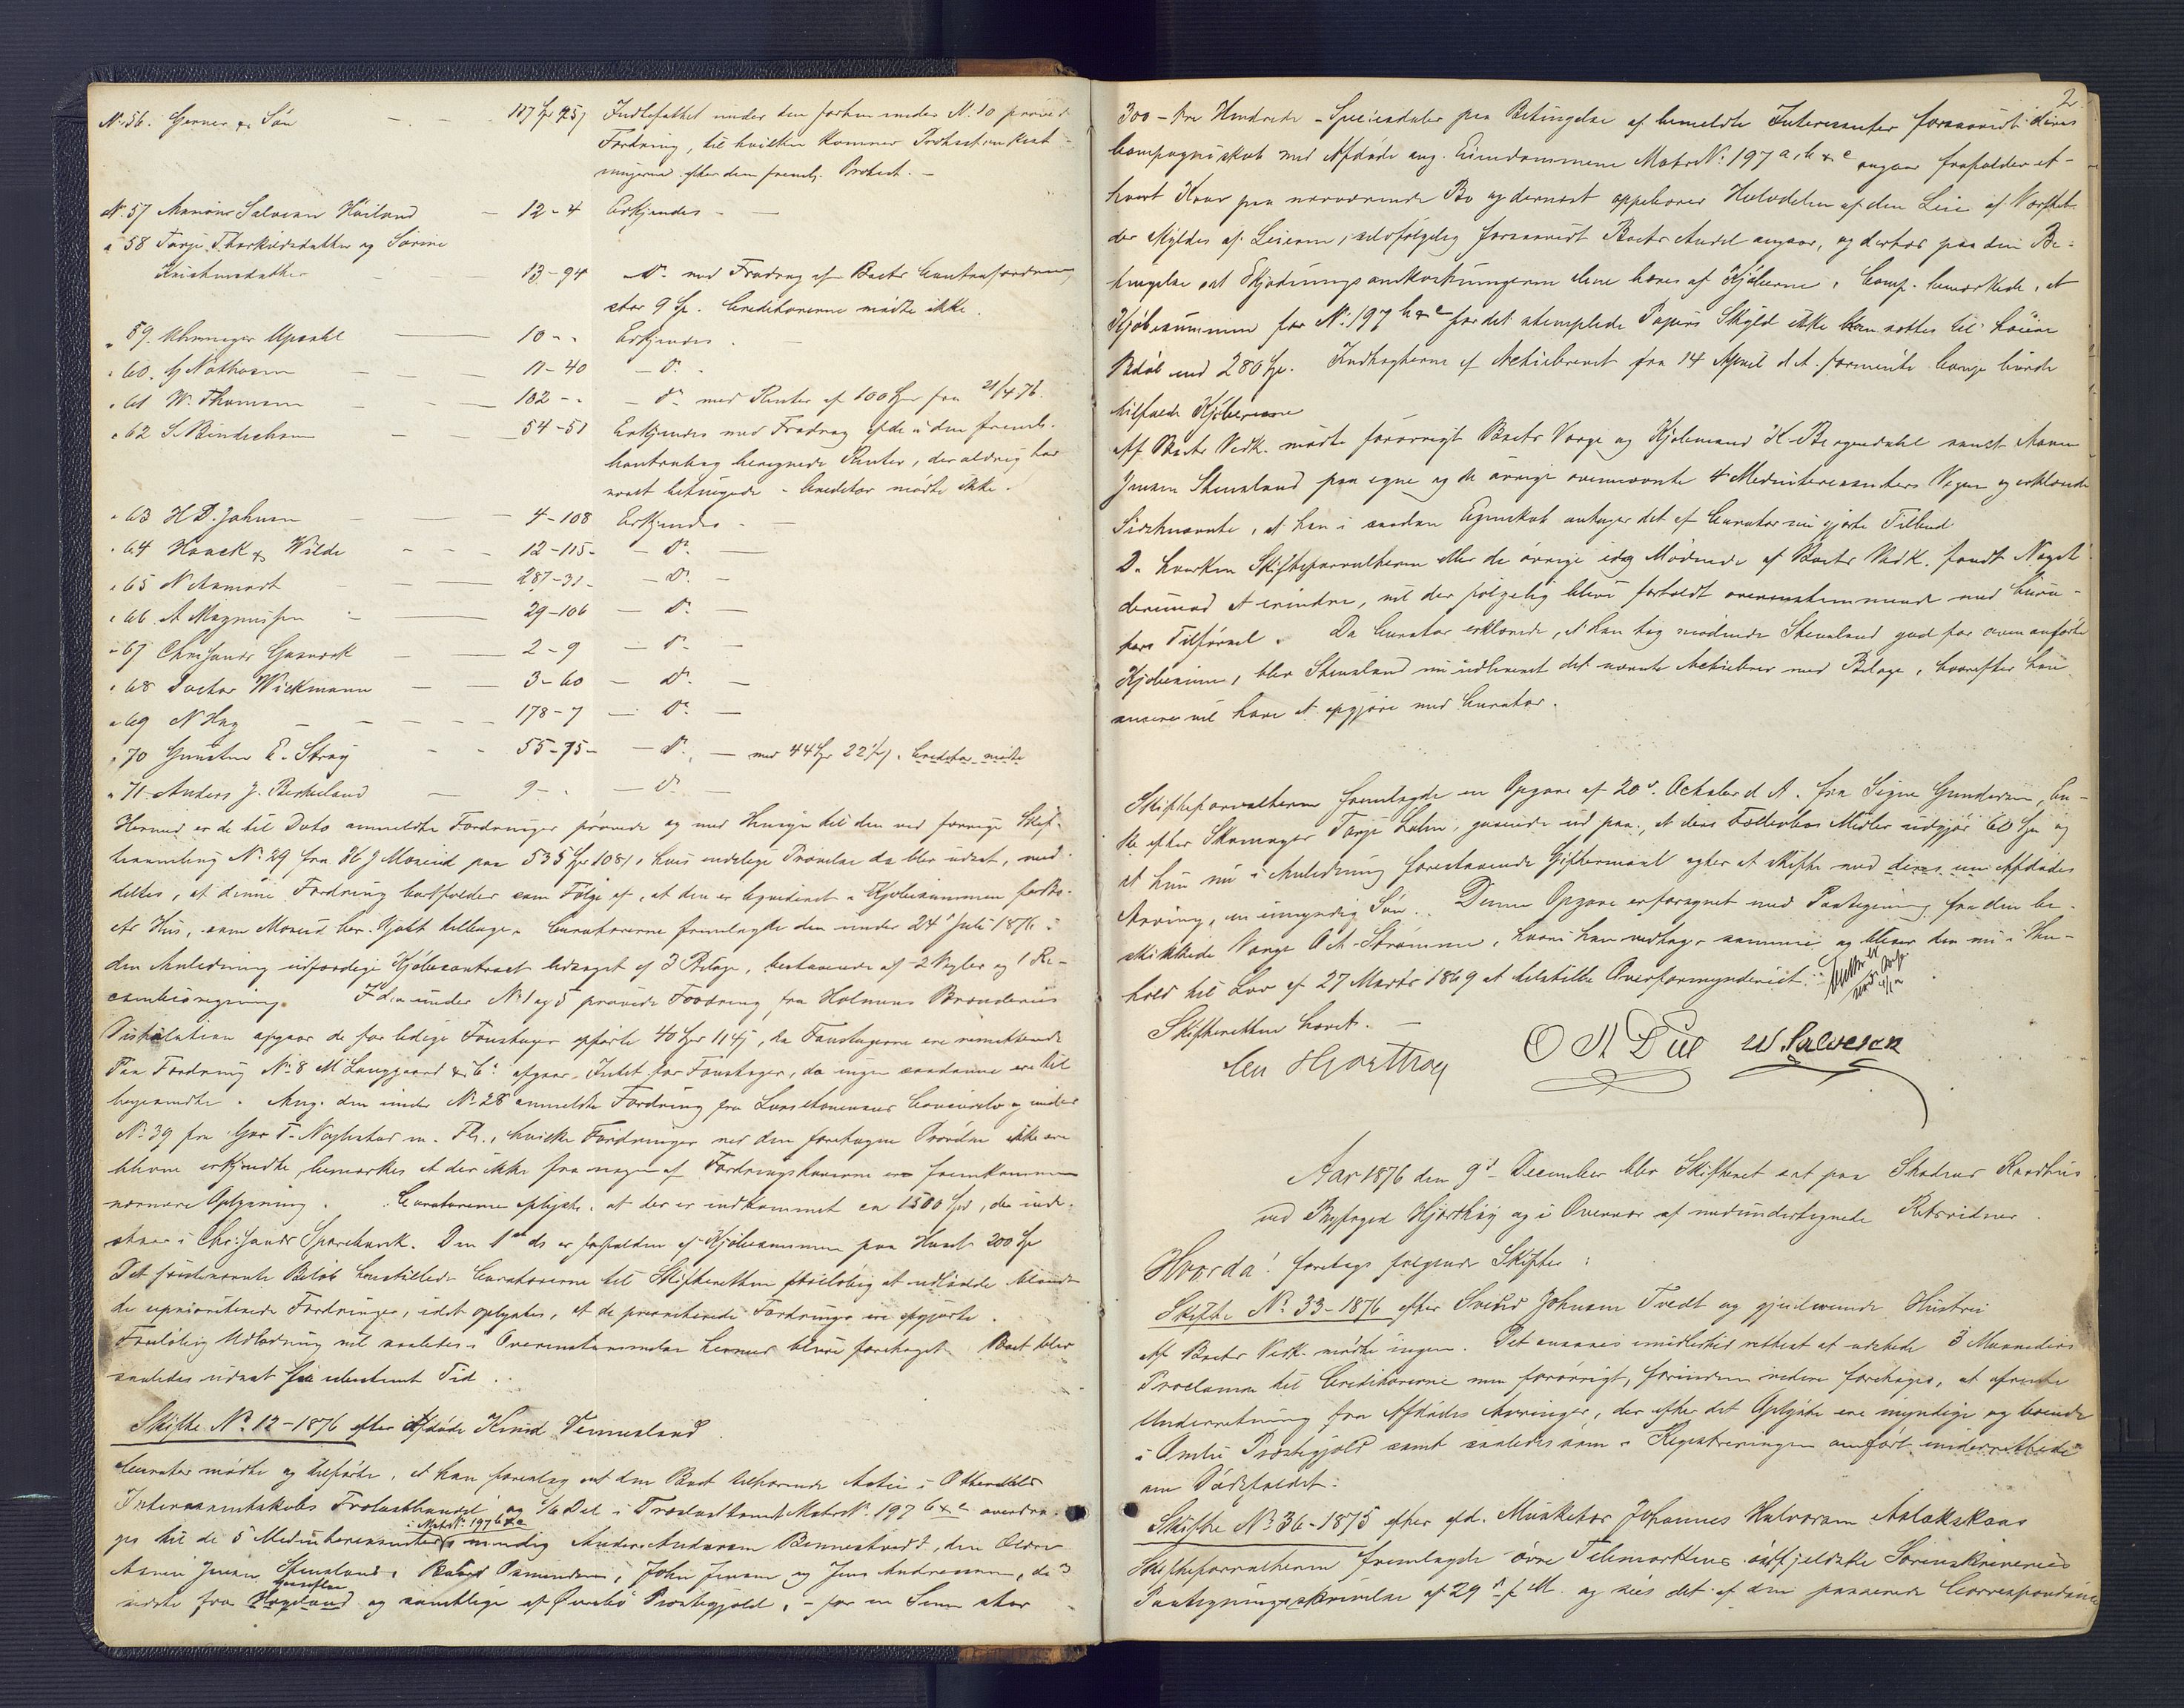 No 56. Garner & Søn - - 117 Spd 75 ß Indbefattet under den forhen under N. 10 prøvede
Fordring, til hvilken kommer Protestomkost-
ningerne efter den freml. Protest. -
No 57 Salvesen Høiland - 12 - 4 Erkjendes - -
" 58 Tarje Tharkildsdatter og Sørine
Kristensdatter - 13 - 94 - Do med Fradrag af Boets Contrafordring
stor 9 Sp. Creditorerne mødte ikke.
" 59. Upsahl - 10 - " Erkjendes. -
" 60. Nathosen - 11 - 40 - Do -
" 61 W. Thomsen - 102 - " - Do med Renter af 100 Spd fra 21/4 76.
" 62 S. Bendichsen - 54 - 51 Erkjendes med Fradrag af de i den freml.
beregnede Renter, der aldrig har
været betingede - Creditor mødte ikke.
" 63 H D. Johnsen - 4 - 108 Erkjendes -
" 64 Haack & Wilde - 12 - 115 - Do -
" 65 N - 287 - 31 - Do -
" 66 A Magnussen - 29 - 106 - Do -
" 67 Chrsands Gasværk - 2 - 9 - Do -
" 68 Doctor Wickmann - 3 - 60 - Do -
" 69 N Hay - 178 - 7 - Do -
" 70 Gunsten E. Stray - 55 - 75 - Do - med 44 Spd 22 ß. Creditor mødte
" 71 Anders J. Birkeland - 9 - " - Do -
Hermed er de til Dato anmeldte Fordringer prøvede og med Hensyn til den ved forrige Skif-
tesamling No 29 fra H J Mosend paa 535 Spd 108 ß, hvis endelige Prøvelse da blev udsat, med-
deltes, at denne Fordring bortfalder som Følge af, at den er liqvideret i Kjøbesummen for Bo-
ets Hus, som Mosend har kjøbt tilbage. Curatorerne fremlagde den under 24de Juli 1876 i
den Anledning udfærdige Kjøbecontract ledsaget af 3 Bilage, bestaaende af 2 Vexler og 1 Re-
cambioregning. I den under No 1 og 5 prøvede Fordring fra Holmens Brænderies
Destillation afgaar de for ledige Foustager opførte 40 Spd 114 ß, da Foustagerne ere remitterede
Fra Fordring No 8 M Langgaard & Co afgaar Intet for Foustager, da ingen saadanne ere til-
bagesendte. Ang. den under No 28 anmeldte Fordring fra Concursbo og under
No 39 fra T. m. Fl., hvilke Fordringer ved den foretagne Prøvelse ikke ere
blevne erkjendte, bemærkes at der ikke fra nogen af Fordringshaverne er fremkommen
nærmere Oplysning. Curatorerne oplyste, at der er indkommet ca 1500 Spd, der inde-
staar i Chr:sands Sparebank. Den 1ste ds er forfalden af Kjøbesummen paa Huset 200 Sp
Det førstnævnte Beløb henstillede Curatorerne til Skifteretten foreløbig at udlodde blandt
de upriviterede Fordringer, idet oplystes, at de prioriterede Fordringer ere opgjorte.
Foreløbig Udlodning vil saaledes i Overensstemmelse hermed blive foretaget. Boet blev
saaledes udsat paa ubestemt Tid.
Skifte No 12 - 1876 efter Afdøde Knud Vennesland.
Curator mødte og tilførte, at han foreslog at den Boet tilhørende Actie i Otterelvens
Interessentskabs Trælasthandel og 1/6 Del i Trælasttomt Matr No 197 b & c overdra-
i Matr No 197 b & c
ges til de 5 Medinteressenter myndig Anders Andersen Bennestvedt, den Ældre
Aanen Jensen Stensland, Baard Osmundsen, John Jensen og Jens Andreassen, de 3
sidste fra Hageland og samtlige af Øvrebø Præstegjeld, - for en Sum stor
2
300 - tre Hundrede - Speciedaler paa Betingelse af bemeldte Interessenter forsaavidt deres
Compagniskab med Afdøde ang. Eiendommene Matr No 197 a, b & c angaar frafalder et-
hvert Krav paa nærværende Bo og dernæst oppebærer Halvdelen af den Leie af Værftet
der skyldes af Leieren, selvfølgelig forsaavidt Boets Andel angaar, og derhos paa den Be-
tingelse at Skjødningsomkostningerne alene bæres af Kjøberne. Comp. bemærkede, at
Kjøbesummen for No 197 b & c for det stemplede Papirs Skyld ikke kan sættes til høiere
Beløb end 280 Sp. Indtægterne af Actiebrevet fra 14 April d. A. formente Comp. burde
tilfalde Kjøberne
Af Boets Vedk. mødte forøvrigt Boets Værge og Kjøbmand K. Bergendahl samt Aanen
Jensen Stensland paa egne og de øvrige ovennævnte 4 Medinteressenters Vegne og erklærede
Sidstnævnte, at han i saadan Egenskab antager det af Curator nu gjorte Tilbud
Da hverken Skifteforvalteren eller de øvrige idag Mødende af Boets Vedk. fandt Noget
derimod at erindre, vil der følgelig blive forholdt overensstemmende med Cura-
tors Tilførsel. Da Curator erklærede, at han tog mødende Stensland god for ovenanførte
Kjøbesum, blev Stensland nu udleveret det nævnte Actiebrev med Bilage, hvorefter han
ansees vil have at opgjøre med Curator.
Skifteforvalteren fremlagde en Opgave af 20de October d. A. fra Signe Gundersen, En-
ke efter Skomager Tarje Lohne, gaaende ud paa, at dens Fællesbos Midler udgjør 60 Sp og
at hun nu i Anledning forestaaende Giftermaal agter at skifte med deres een Afdødes
Arving, en umyndig Søn. Denne Opgave er forsynet med Paategning fra den be-
skikkede Værge Oct. Strømme, hvori han vedtager samme og bliver den nu i Hen-
hold til Lov af 27 Marts 1869 at tilstille Overformynderiet.
Skifteretten hævet. -
Hjorthøy O A Due W Salvesen
Aar 1876 den 9de December blev Skifteret sat paa Stadens Raadhus
ved Byfoged Hjorthøy og i Overvær af medundertegnede Retsvidner.
Hvorda! foretoges følgende Skifter:
Skifte No 33 - 1876 efter Johnsen Tvedt og gjenlevende Hustru
Af Boets Vedk. mødte ingen. Det ansaaes imidlertid rettest at udstede 3 Maaneders
Proclama til Creditorerne men forøvrigt, førinden videre foretages, at afvente
Underretning fra Afdødes Arvinger, der efter det Oplyste ere myndige og boende
i Omlie Præstegjeld samt saaledes som i Registreringen anført underrettede
om Dødsfaldet.
Skifte No 36 - 1875 efter afd. Musketer Johannes Halvorsen Aslakskaas
Skifteforvalteren fremlagde øvre Telemarkens østfjeldske Sorenskriveries
Paategningsskrivelse af 29de f. M. og sees det af den passerede Correspondance